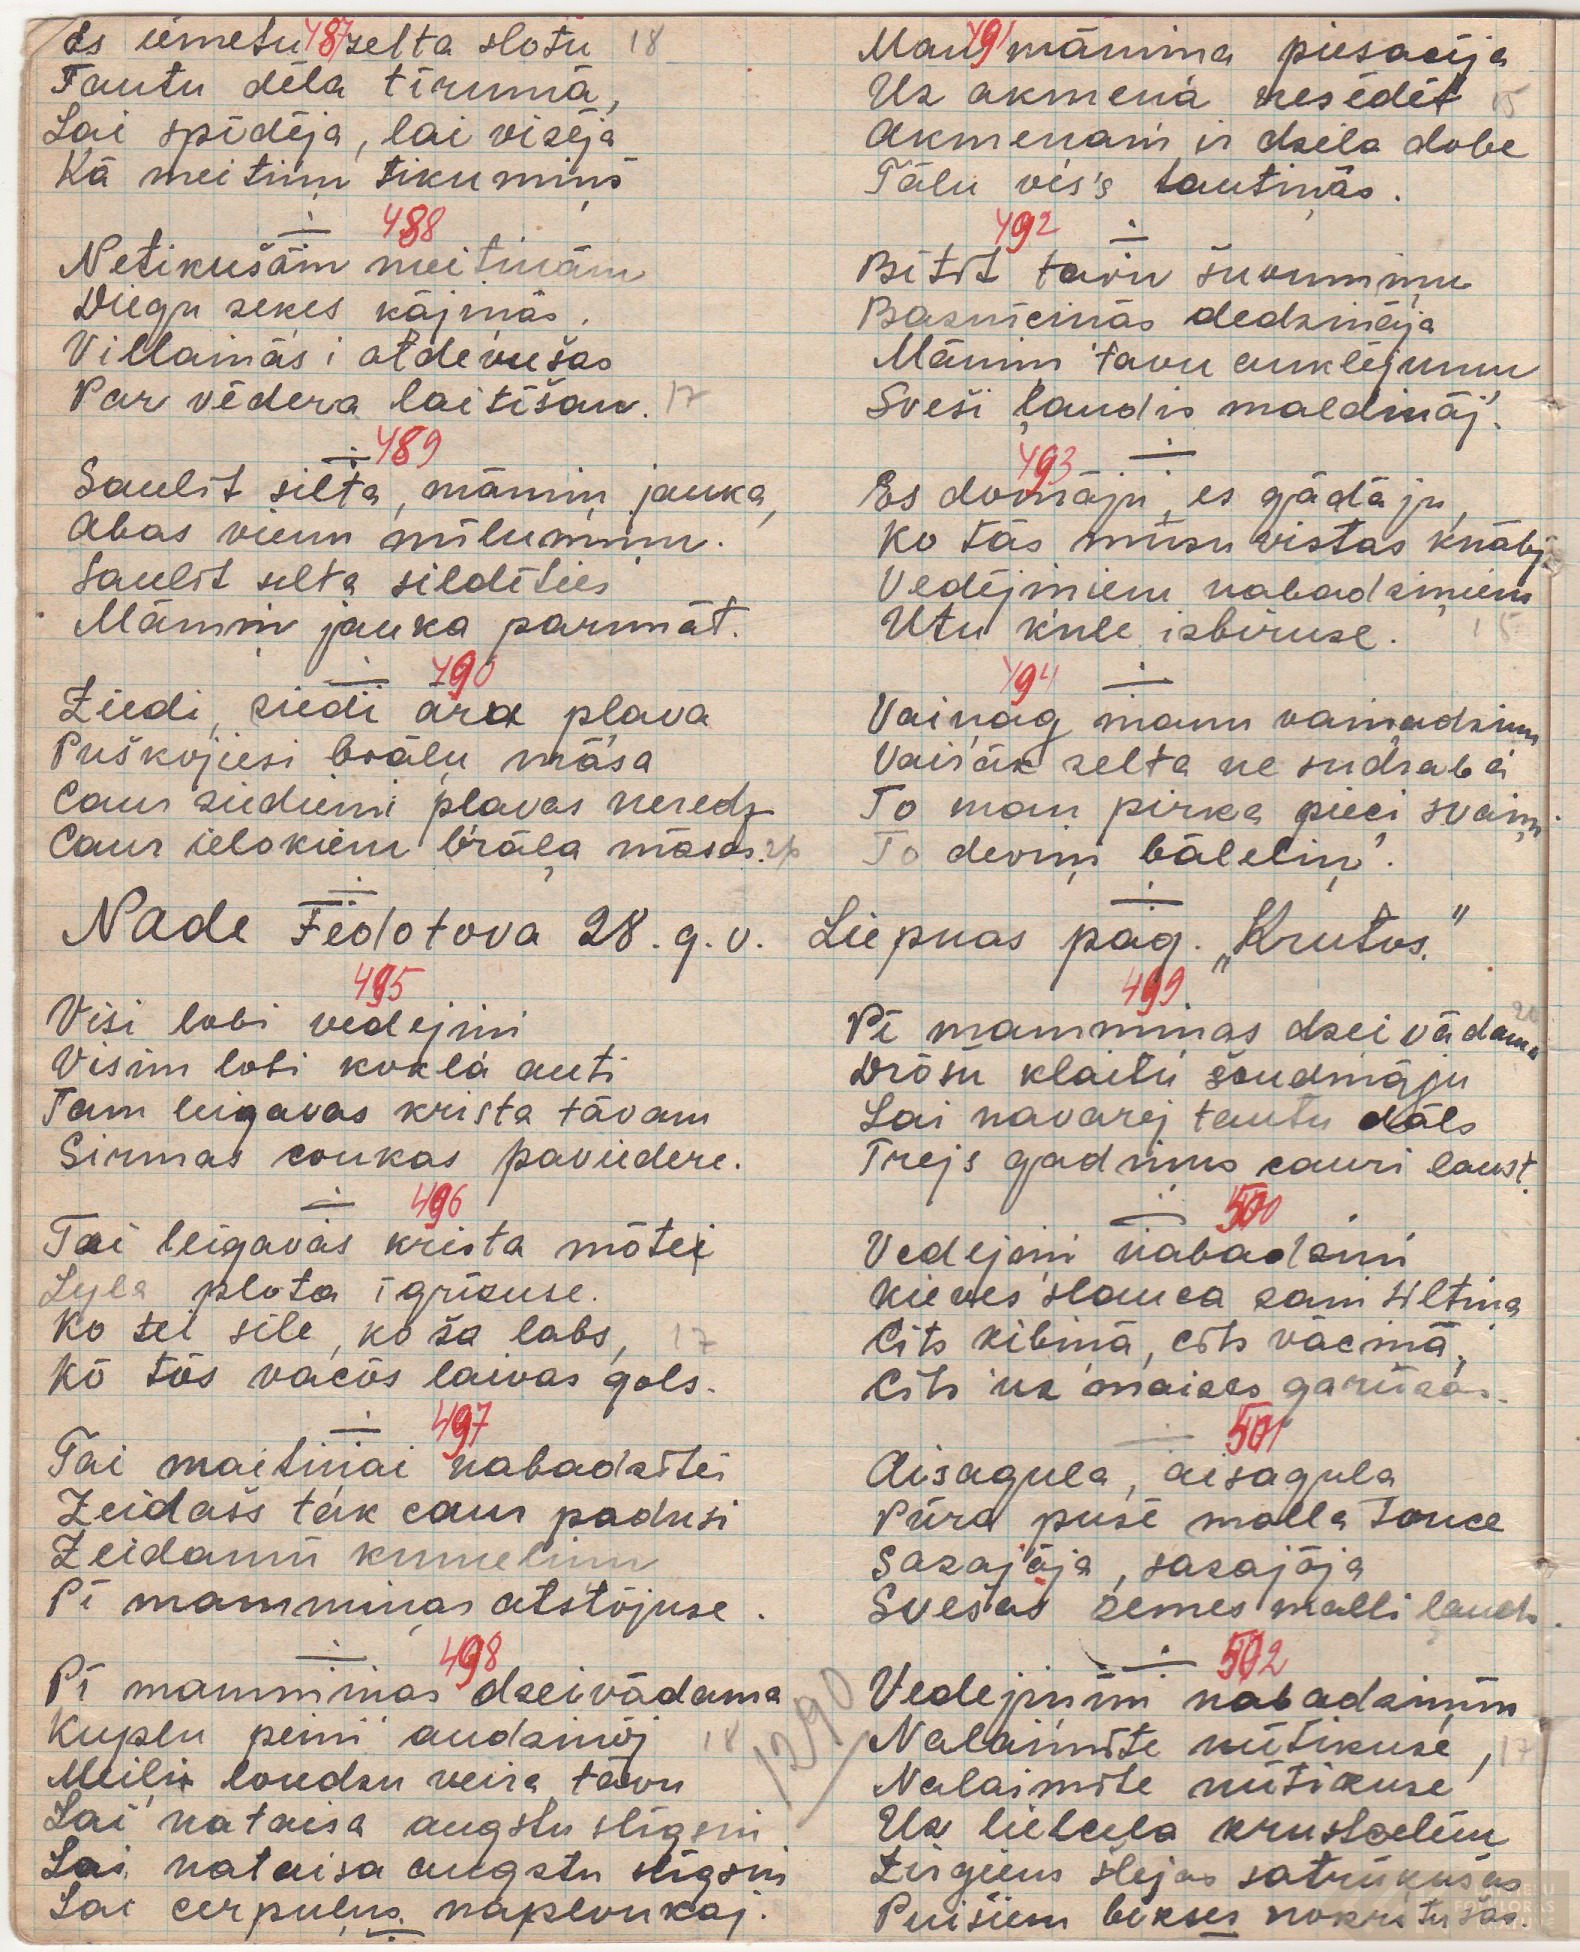 487
Es iemetu zelta slotu 18
Tautu dēla tīrumā,
Lai spīdēja, lai vizēja
Kā meitiņ tikumiņš
488
Netikušām meitiņām
Diegu zeķes kājiņās.
Villainās i atdevušas
Par vēdera laitīšan. 17
489
Saulīt silta, māmiņ jauka,
Abas vienu mīlumiņu.
Saulīt silta sildīties
Māmiņ jauka parunāt.
490
Ziedi, ziedi āra pļava
Puškojiesi brāļu māsa
Caur ziediem pļavas neredz
Caur ielokiem brāļa māsas.
491
Man māmiņa piesacīja
Uz akmeņa nesēdēt 15
Akmenam ir dziļa dobe
Tālu viss tautiņās.
492
Bitīt tavu šuvumiņu
Baznīciņās dedzināja
Māmiņ tavu auklējumu
Sveši ļaudis maldināj.
493
Es domāju, es gādāju,
Ko tās mūsu vistas knābj
Vedējiņiem nabadziņiem
Utu kule izbiruse. 15
494
Vaiņag manu vaiņadziņu
Vairāk zelta ne sudraba
To man pirka pieci svaiņ
To deviņi bāleliņ.
Nade Fedotova 28. g. v. Liepnas pag. „Krutos."
495
Visi lobi vedejiņi
Visim lobi kokla auti
Tam leigavas krista tāvam
Sirmas coukas paviedere.
496
Tai leigavas krista mōtei
Lyela plota īgrīzuse.
Ko tei sile, ko ša labs, 17
Kō tōs vacōs laivas gols.
497
Tai maitiņai nabadzītei
Zeidašs tak caur padusi
Zeidamu kumeliņu
Pī mammiņas atstōjuse.
498
Pī mammiņas dzeivādama
Kuplu peini audzinōj 18
Meiļi loudzu veira tāvu
Lai nataisa augstu slīgsni
Lai nataisa augstu slīgsni
Lai cerpuļus naplouкaj.
1290
499
Pī mammiņas dzeivādama 20
Drōšu klaitu šoudināju
Lai navarej tautu dāls
Trejs gadiņus cauri laust.
500
Vedejiņi nabadziņi
Kieves slauca zam siltiņa
Cits ķibinā, cits vācinā,
Cits uz maizes garūzās.
501
Aizagula, aizagula
Pūra pusē malla Touce
Sazajōja, sazajōja
Svešas zemes malli ļauds.
502
Vedejiņim nabadziņim
Nalaimīte nūtikuse, 17
Nalaimīte nūtikuse
Uz lielceļa krustceliņ
Zirgiem slejas satrūkušas
Puišiem bikses nokritušas.